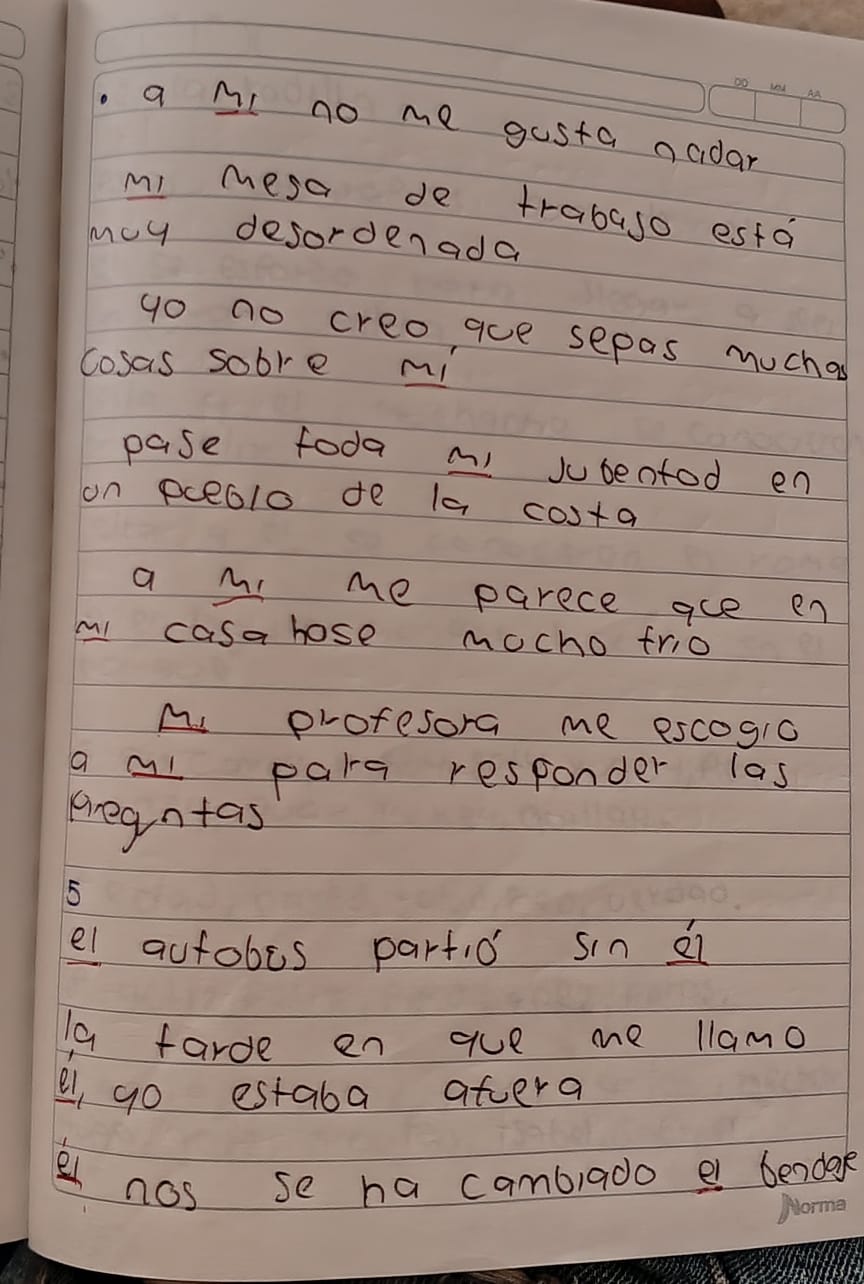 DD MM AA
. a mi no me gusta nadar
mi mesa de trabajo está
muy desordenada
yo no creo que sepas muchas
cosas sobre mí
pase toda mi jubentud en
un pueblo de la costa
a mi me parece que en
mi casa hose mucho frio
Mi profesora me escogio
a mi para responder las
pregntas
5
el autobus partió sin él
la tarde en que me llamo
él, yo estaba afuera
él nos se ha cambiado el bendaje
Norma